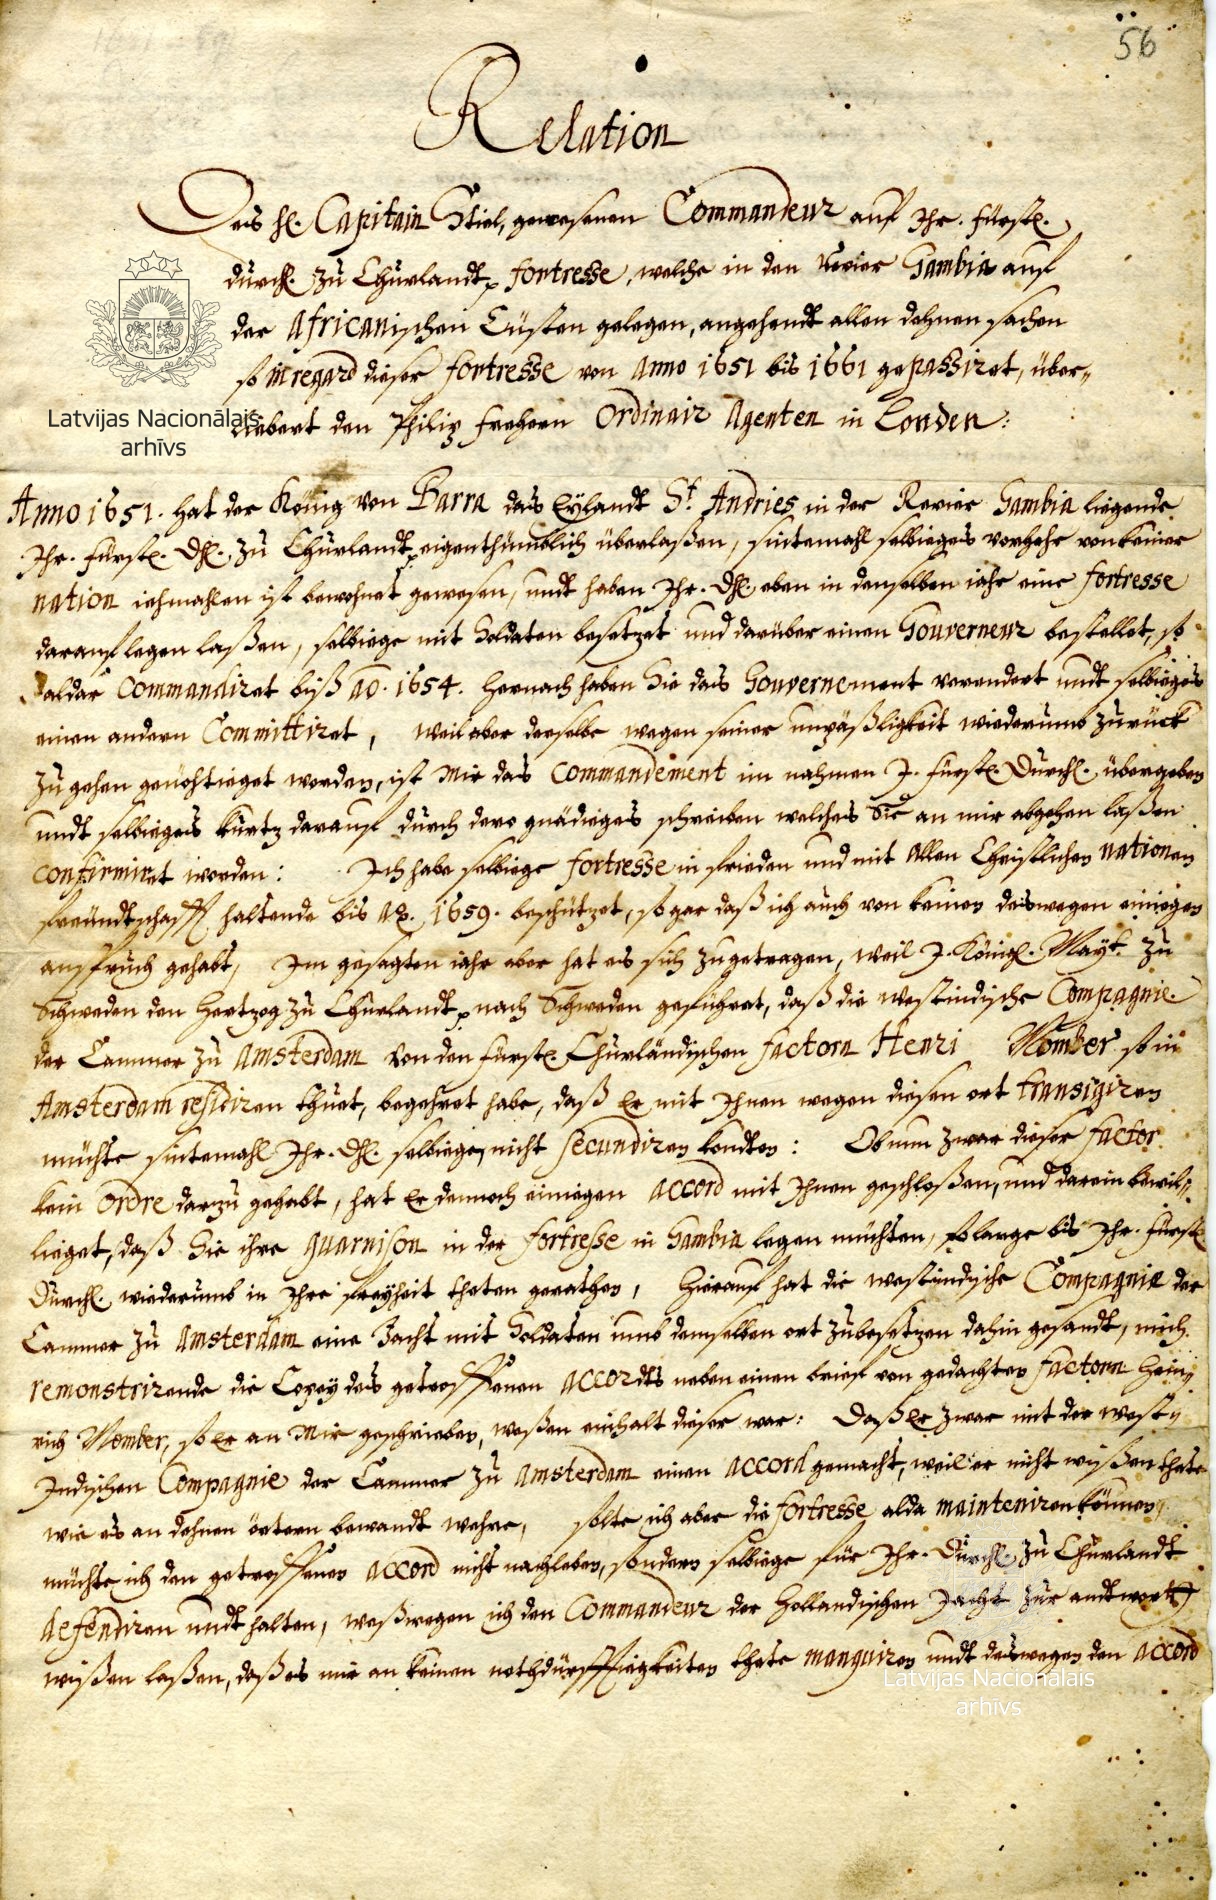 56
Relation
Des H. Capitain Stiel, gewesenen Commandeur auf Ihr. Fürstl.
Durchl. zu Churlandt fortresse, welche in den Revier Gambia auf
der Africanischen Cüsten gelegen, angehendt allen dehnen sachen
so in regard dieser fortresse von Anno 1651 bis 1661 gepassiret, über-
liebert den Philip Freher Ordinair Agenten in Londen:
Latvijas Nacionālais
arhīvs
Anno 1651. hat der König von Barra das Eylandt St. Andries in der Revier Gambia liegende
Ihr. Fürstl. Dhl. zu Churlandt eigenthümblich überlaßen, sintemahl selbieges vorhehr von keiner
nation iehmahlen ist bewohnet gewesen, undt haben Ihr. Dhl. eben in demselben iahr eine fortresse
darauf legen laßen, selbiege mit Soldaten besetzet und darüber einen Gouverneur bestellet, so
aldar Commandiret biß ao. 1654. Hernach haben Sie das Gouvernement verendert undt selbieges
einen andern Committiret, weil aber derselbe wegen seiner unpäßligkeit wiederumb zurück
zu gehen genöhtieget worden, ist mir das Commandement im nahmen I. Fürstl. Durchl. übergeben
undt selbieges kurtz darauf durch dero gnädieges schreiben welches Sie an mir abgehen laßen
confirmiret worden: Ich habe selbiege fortresse in frieden und mit allen Christlichen nationen
freündtschafft haltende bis Ao. 1659. beschützet, so gar daß ich auch von keinen deswegen einiegen
anspruch gehabt, Im gesagten iahr aber hat es sich zugetragen, weil I. Königl. Mayt. zu
Schweden den Hertzog zu Churlandt nach Schweden geführet, daß die westindische Compagnie
der Cammer zu Amsterdam von den Fürstl. Churländischen factorn Henri Momber so in
Amsterdam residiren thuet, begehret habe, daß Er mit Ihnen wegen diesen ort transigiren
müchte sintemahl Ihr. Dhl. selbiege nicht secundiren kondten: Ob nun zwar dieser factor
kein ordre darzu gehabt, hat Er dennoch einigen accord mit Ihnen geschloßen, und darein bewil-
lieget, daß Sie ihre guarnison in der fortresse in Gambia legen müchten, so lange bis Ihr. Fürstl.
Durchl. wiederumb in Ihre freyheit theten gerathen, Hierauf hat die westindische Compagnie der
Cammer zu Amsterdam eine Jacht mit Soldaten umb demselben ort zubesetzen dahin gesandt, mich
remonstrirende die Copey des getroffenen accordts neben einen brief von gedachten factorn Hein-
rich Momber, so Er an mir geschrieben, weßen einhalt dieser war: Daß Er zwar mit der west-
Indischen Compagnie der Cammer zu Amsterdam einen accord gemacht, weil er nicht wißen thete
wie es an dehnen örtern bewandt wehre, solte ich aber die fortresse alda mainteniren können,
müchte ich den getroffenen accord nicht nachleben, sondern selbiege für Ihr. Durchl. zu Churlandt
defendiren undt halten, weßwegen ich den Commandeur der Hollandischen Jacht zur andtwort
wißen laßen, daß es mir an keinen nothdürfftiegkeiten thete manquiren undt deswegen den accord
Latvijas Nacionālais
arhīvs